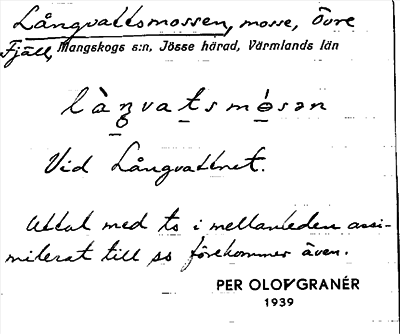 Långvattsmossen, mosse, Övre
Fjäll, Mangskogs s:n, Jösse härad, Värmlands län
làŋvatsmósən
Vid Långvattnet.
Uttal med ts i mellanleden assi-
milerat till ss förekommer även.
PER OLOF GRANÉR
1939